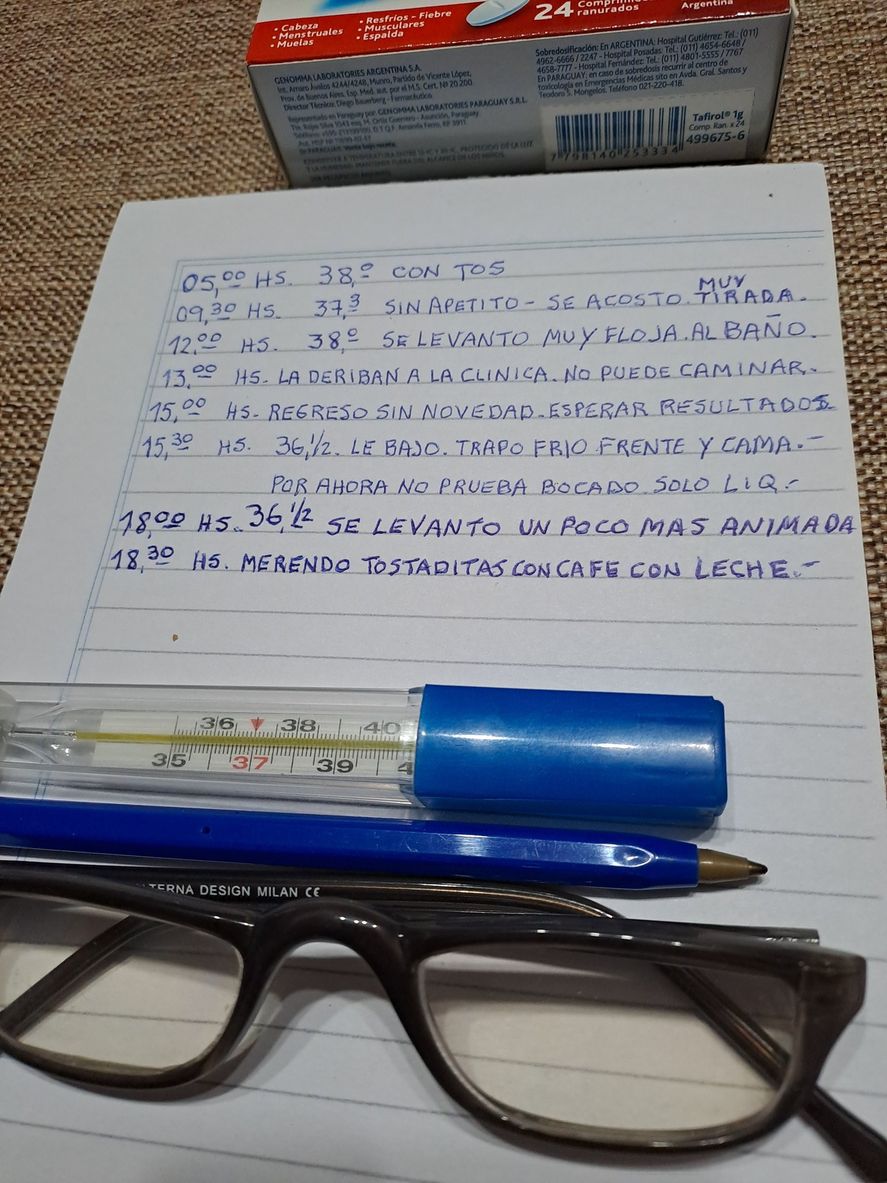 • Cabeza
• Menstruales
• Muelas
• Resfríos - Fiebre
• Musculares
• Espalda
24 Comprimidos ranurados
Argentina
GENOMMA LABORATORIES ARGENTINA S.A.
Int. Amaro Ávalos 4244/4248, Munro, Partido de Vicente López,
Prov. de Buenos Aires. Esp. Med. aut. por el M.S. Cert. Nº 20.200.
Director Técnico: Diego Bauerberg - Farmacéutico.
Representado en Paraguay por: GENOMMA LABORATORIES PARAGUAY S.R.L.
Sobredosificación: En ARGENTINA: Hospital Gutiérrez: Tel.: (011)
4962-6666 / 2247 - Hospital Posadas: Tel.: (011) 4654-6648 /
4658-7777 - Hospital Fernández: Tel.: (011) 4801-5555 / 7767
En PARAGUAY: en caso de sobredosis recurrir al centro de
toxicología en Emergencias Médicas sito en Avda. Gral. Santos y
Teodoro S. Mongelos. Teléfono 021-220-418.
Tafirol® 1g
Comp. Ran. x 24
499675-6
7 798140 253334
05,00 HS. 38,0 CON TOS
09,30 HS. 37,3 SIN APETITO - SE ACOSTO. MUY TIRADA.
12,00 HS. 38,0 SE LEVANTO MUY FLOJA. AL BAÑO.
13,00 HS. LA DERIBAN A LA CLINICA. NO PUEDE CAMINAR.
15,00 HS. REGRESO SIN NOVEDAD. ESPERAR RESULTADOS
15,30 HS. 36,1/2. LE BAJO. TRAPO FRIO FRENTE Y CAMA.-
POR AHORA NO PRUEBA BOCADO. SOLO LIQ.-
18,00 HS. 36,1/2 SE LEVANTO UN POCO MAS ANIMADA
18,30 HS. MERENDO TOSTADITAS CON CAFE CON LECHE.-
36 38 40
35 37 39 4
TERNA DESIGN MILAN CE